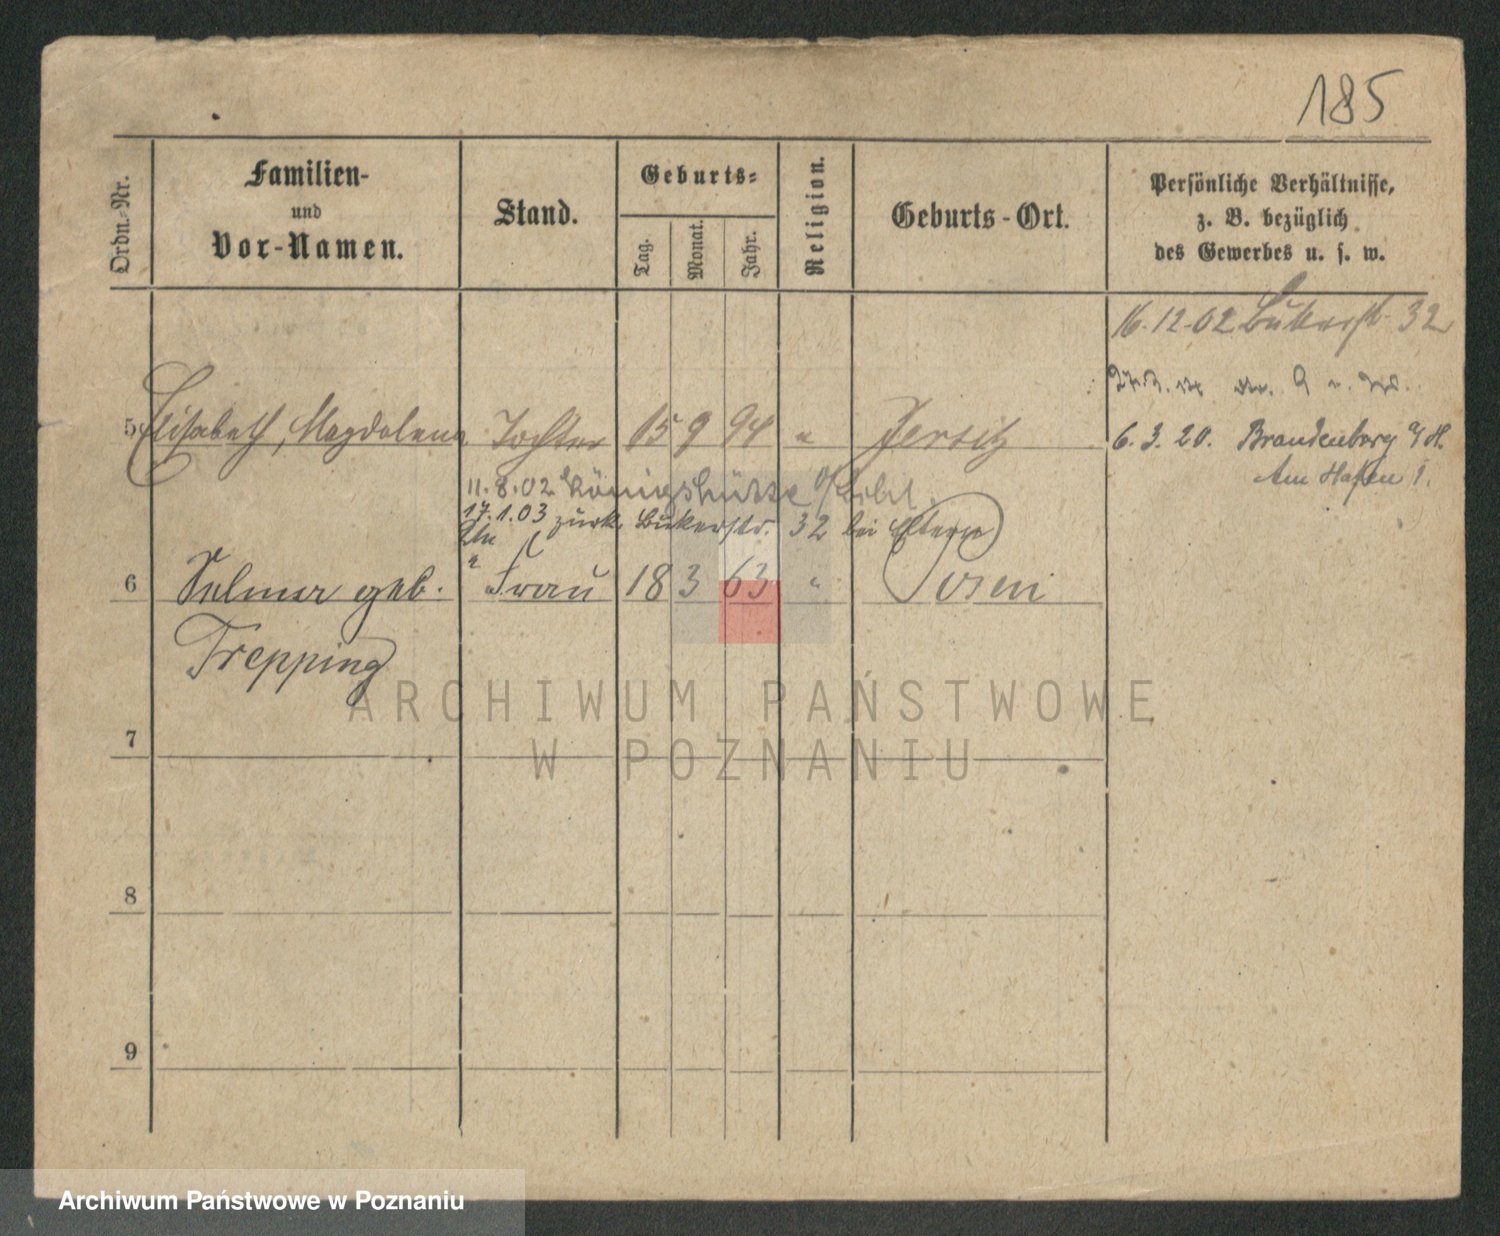 185
Ordn.-Nr.
Familien-
und
Vor-Namen.
Stand.
Geburts-
Tag.
Monat.
Jahr.
Religion.
Geburts-Ort.
Persönliche Verhältnisse,
z. B. bezüglich
des Gewerbes u. s. w.
16.12.02 Bukerst. 32
5 Elisabeth, Magdalena Tochter 15 9 94 " Jersitz
6.3.20. Brandenburg a/H.
Am Hafen 1.
11.8.02 Königshütte o/Schl.
17.1.03 zurk. Bukerstr. 32 bei Eltern
6 Selmar geb. Frau 18 3 63 " Posen
Trepping
7
8
9
ARCHIWUM PAŃSTWOWE
W POZNANIU
Archiwum Państwowe w Poznaniu